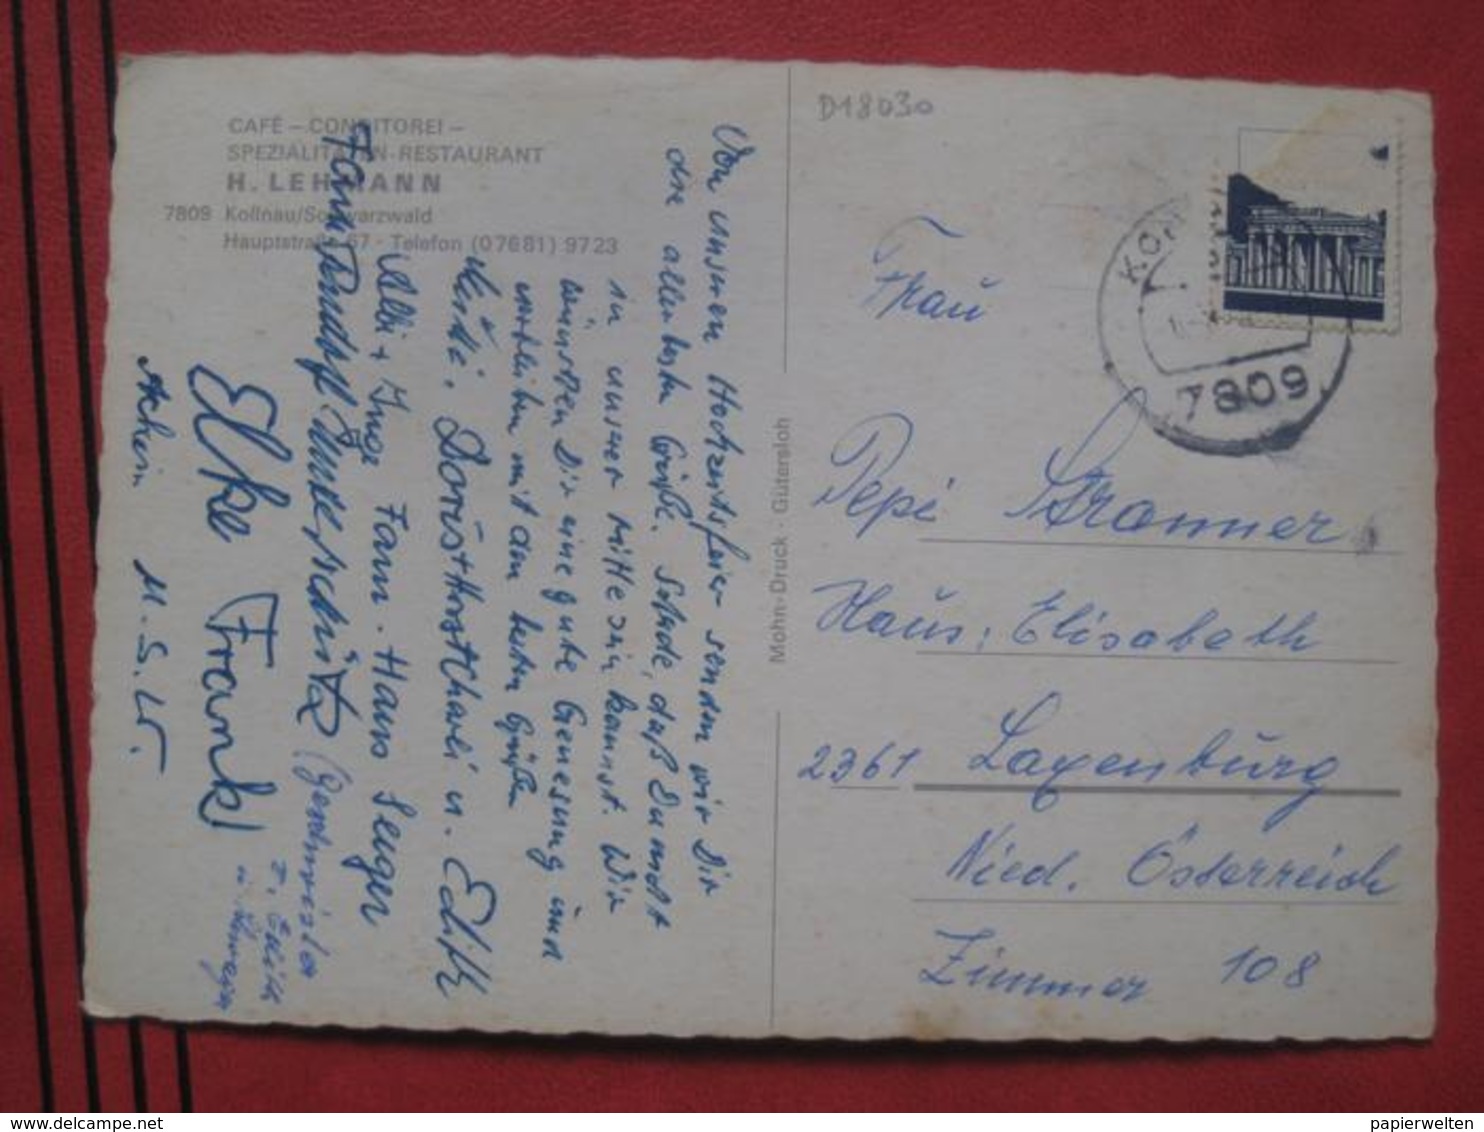 CAFÉ – CONDITOREI –
SPEZIALITÄTEN-RESTAURANT
H. LEHMANN
7809 Kollnau/Schwarzwald
Hauptstraße 67 · Telefon (07681) 9723
Von unserer Hochzeitsfeier senden wir Dir
die allerbesten Grüße. Schade, daß Du nicht
in unser Mitte sein kannst. Wir
wünschen Dir eine gute Genesung und
verbleiben mit den besten Grüßen
Doris + Horst Charli u. Edith
+ Inge Fam. Hans Seeger
Fam. Rudolf
Elke Frank
M. S. W.
Mohn-Druck · Gütersloh
D18030
7809
Frau
Pepi Stranner
Haus, Elisabeth
2361 Laxenburg
Nied. Österreich
Zimmer 108
papierwelten